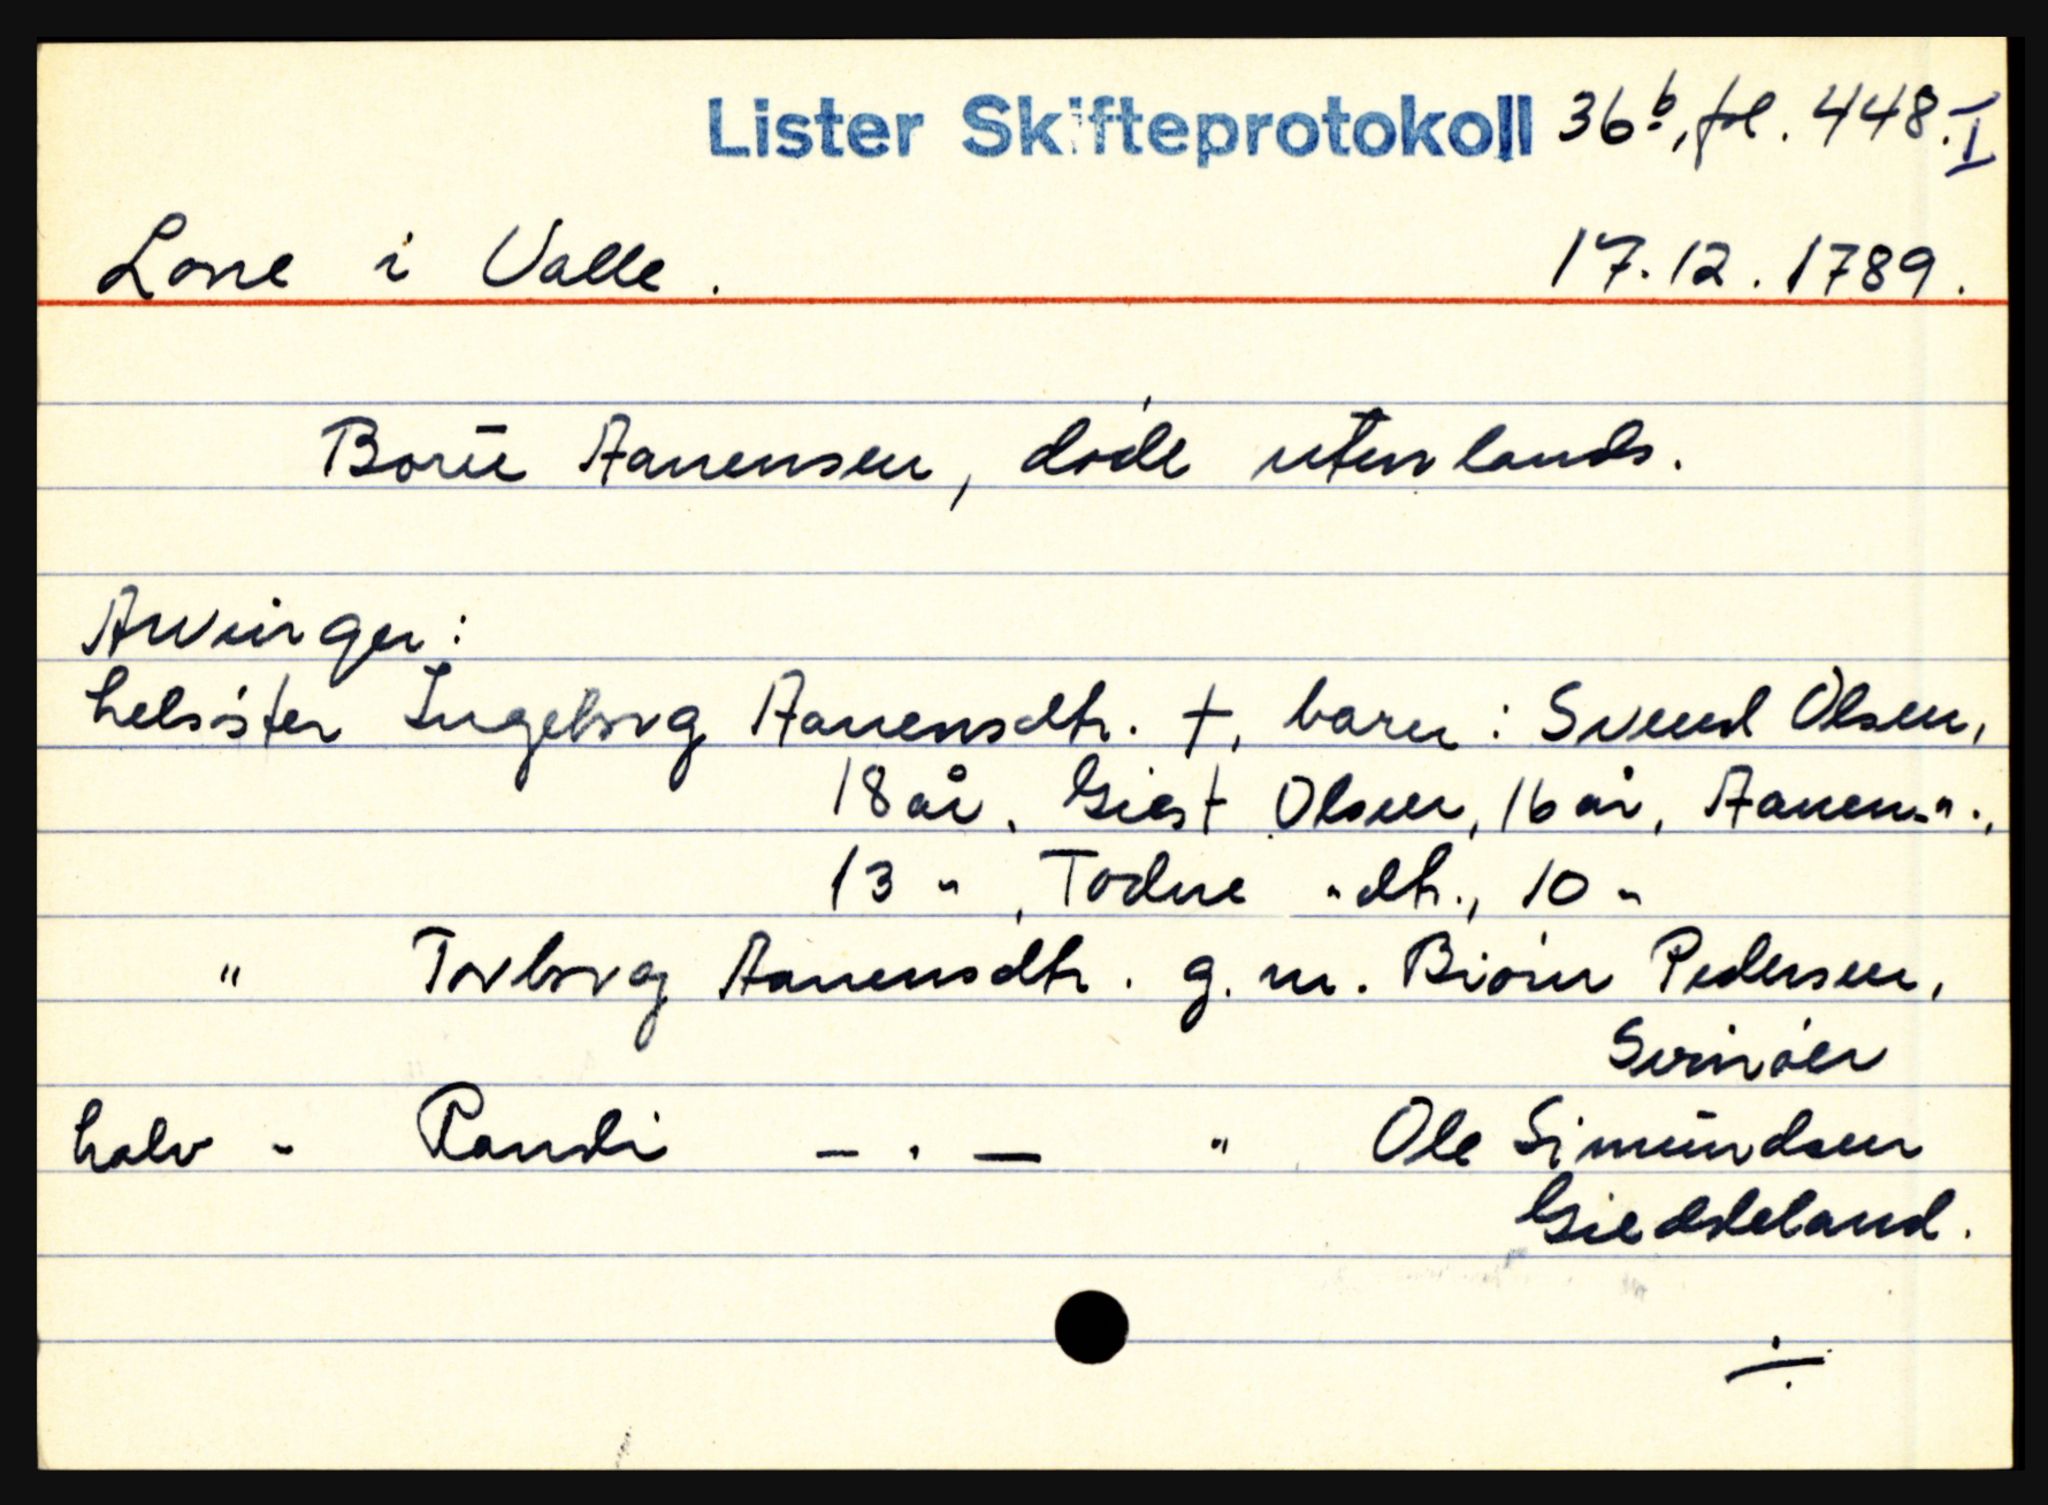 Lister Skifteprotokoll 36b, fol. 448.I
Lone i Valle. 17.12.1789.
Borū Aanensen, døde utenlands.
Arvinger:
helsøster Ingeborg Aanensdtr. †, barn: Svend Olsen,
18 år, Giest Olsen, 16 år, Aanen -"-.,
13 " , Todne " dtr., 10 "
" Torborg Aanensdtr. g. m. Biørn Pedersen,
halv - Randi — . — " Ole Simūndsen
Gieddeland.
÷